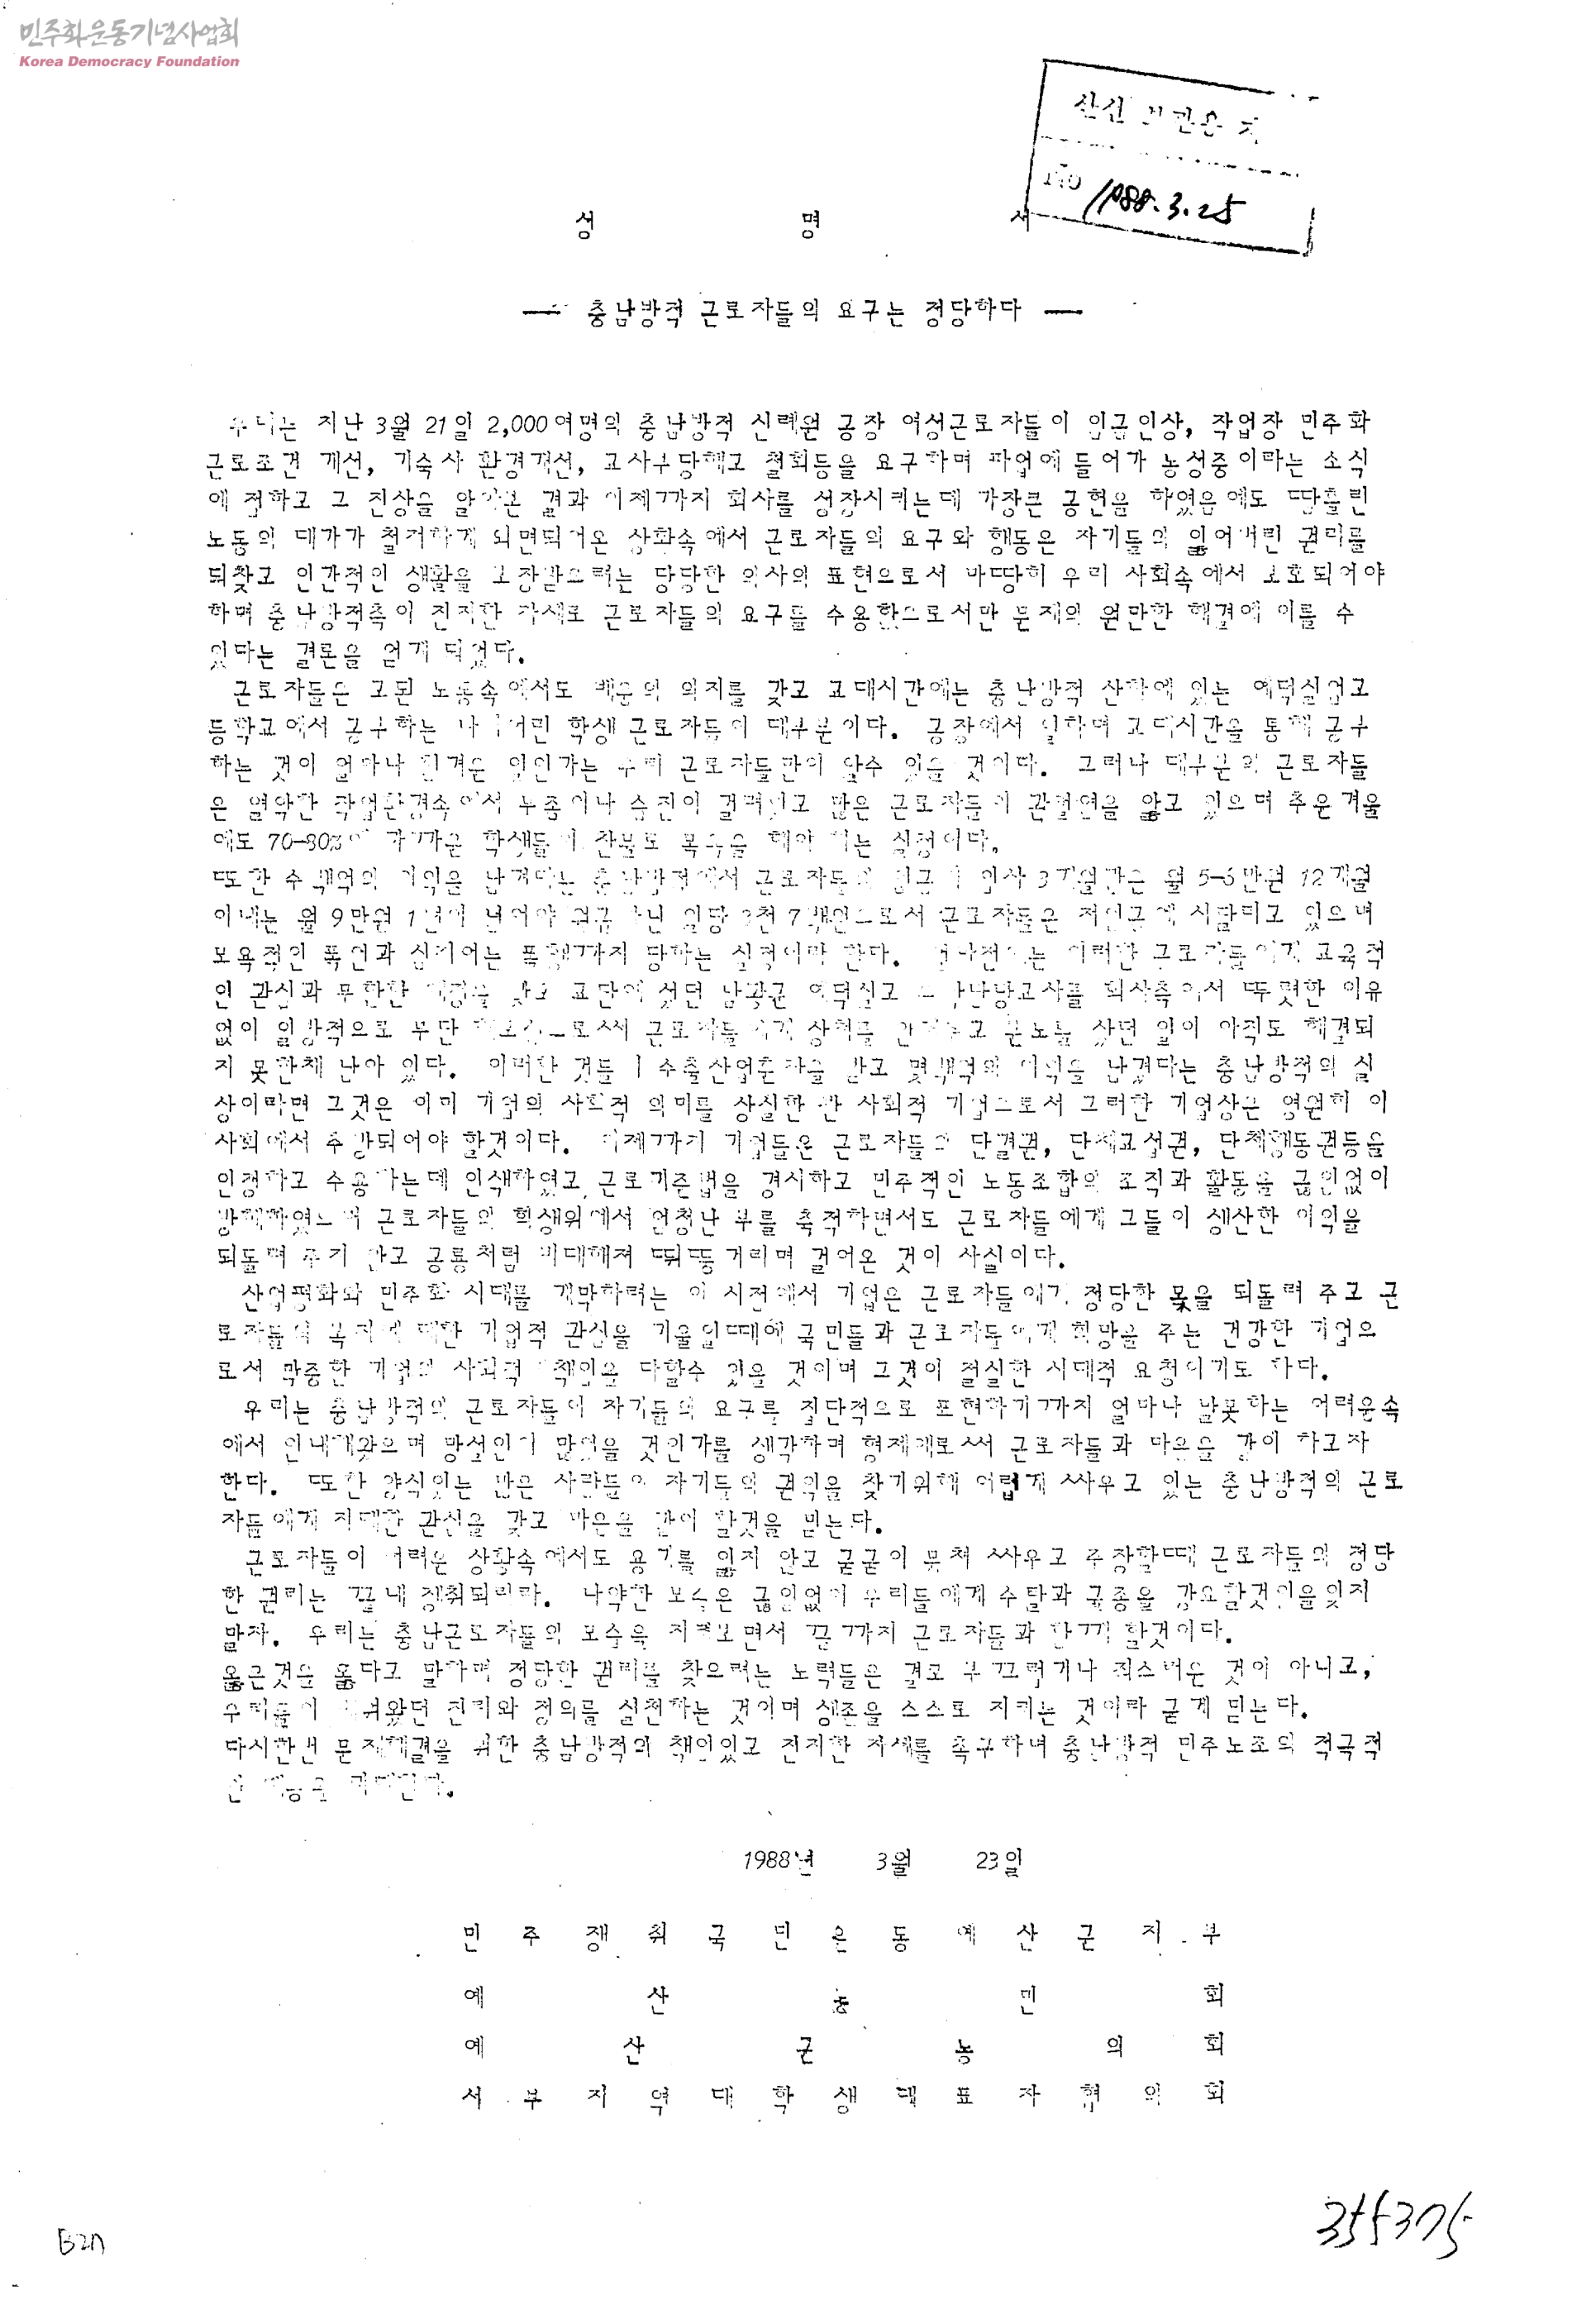 민주화운동기념사업회
Korea Democracy Foundation
1988.3.25
성 명 서
— 충남방적 근로자들의 요구는 정당하다 —
우리는 지난 3월 21일 2,000여명의 충남방적 신례원 공장 여성근로자들이 임금인상, 작업장 민주화
근로조건 개선, 기숙사 환경개선, 교사부당해고 철회등을 요구하며 파업에 들어가 농성중이라는 소식
에 접하고 그 진상을 알아본 결과 이제까지 회사를 성장시키는데 가장큰 공헌을 하였음에도 땀흘린
노동의 대가가 철저하게 외면되어온 상황속에서 근로자들의 요구와 행동은 자기들의 잃어버린 권리를
되찾고 인간적인 생활을 보장받으려는 당당한 의사의 표현으로서 마땅히 우리 사회속에서 보호되어야
하며 충남방적측이 진지한 자세로 근로자들의 요구를 수용함으로서만 문제의 원만한 해결에 이를 수
있다는 결론을 얻게 되었다.
근로자들은 고된 노동속에서도 배움의 의지를 갖고 교대시간에는 충남방적 산하에 있는 예덕실업고
등학교에서 공부하는 나 어린 학생 근로자들이 대부분이다. 공장에서 일하며 교대시간을 통해 공부
하는 것이 얼마나 힘겨운 일인가는 우리 근로자들만이 알수 있을 것이다. 그러나 대부분의 근로자들
은 열악한 작업환경속에서 무좀이나 습진이 걸려있고 많은 근로자들이 관절염을 앓고 있으며 추운겨울
에도 70-80%에 가까운 학생들이 찬물로 목욕을 해야 하는 실정이다.
또한 수백억의 이익을 남긴다는 충남방적에서 근로자들의 임금이 입사 3개월간은 월 5-6만원 12개월
이내는 월 9만원 1년이 넘어야 일당 3천 7백원으로서 근로자들은 저임금에 시달리고 있으며
모욕적인 폭언과 심지어는 폭행까지 당하는 실정이라 한다. 이러한 근로자들에게 교육적
인 관심과 무한한 애정을 갖고 교단에 섰던 예덕실고 회사측에서 뚜렷한 이유
없이 일방적으로 무단 해고함으로써 근로자들에게 상처를 안겨주고 분노를 샀던 일이 아직도 해결되
지 못한채 남아 있다. 이러한 것들이 수출산업훈장을 받고 몇백억의 이익을 남겼다는 충남방적의 실
상이라면 그것은 이미 기업의 사회적 의미를 상실한 반 사회적 기업으로서 그러한 기업상은 영원히 이
사회에서 추방되어야 할것이다. 이제까지 기업들은 근로자들의 단결권, 단체교섭권, 단체행동권등을
인정하고 수용하는데 인색하였고 근로기준법을 경시하고 민주적인 노동조합의 조직과 활동을 끊임없이
방해하였으며 근로자들의 희생위에서 엄청난 부를 축적하면서도 근로자들에게 그들이 생산한 이익을
되돌려 주지 않고 공룡처럼 비대해져 뒤뚱거리며 걸어온 것이 사실이다.
산업평화와 민주화 시대를 개막하려는 이 시점에서 기업은 근로자들에게 정당한 몫을 되돌려 주고 근
로자들의 복지에 대한 기업적 관심을 기울일때에 국민들과 근로자들에게 희망을 주는 건강한 기업으
로서 막중한 기업의 사회적 책임을 다할수 있을 것이며 그것이 절실한 시대적 요청이기도 하다.
우리는 충남방적의 근로자들이 자기들의 요구를 집단적으로 표현하기까지 얼마나 말못하는 어려운속
에서 인내해왔으며 망설임이 많았을 것인가를 생각하며 형제애로써 근로자들과 마음을 같이 하고자
한다. 또한 양식있는 많은 사람들이 자기들의 권익을 찾기위해 어렵게 싸우고 있는 충남방적의 근로
자들에게 지대한 관심을 갖고 마음을 같이 할것을 믿는다.
근로자들이 어려운 상황속에서도 용기를 잃지 않고 굳굳이 뭉쳐 싸우고 주장할때 근로자들의 정당
한 권리는 끝내 쟁취되리라. 나약한 모습은 끊임없이 우리들에게 수탈과 굴종을 강요할것임을잊지
말자. 우리는 충남근로자들의 모습을 지켜보면서 끝까지 근로자들과 함께 할것이다.
옳은것을 옳다고 말하며 정당한 권리를 찾으려는 노력들은 결코 부끄럽거나 죄스러운 것이 아니고,
우리들이 배워왔던 진리와 정의를 실천하는 것이며 생존을 스스로 지키는 것이라 굳게 믿는다.
다시한번 문제해결을 위한 충남방적의 책임있고 진지한 자세를 촉구하며 충남방적 민주노조의 적극적
1988년 3월 23일
민 주 쟁 취 국 민 운 동 예 산 군 지 부
예 산 농 민 회
예 산 군 농 의 회
서 부 지 역 대 학 생 대 표 자 협 의 회
355375